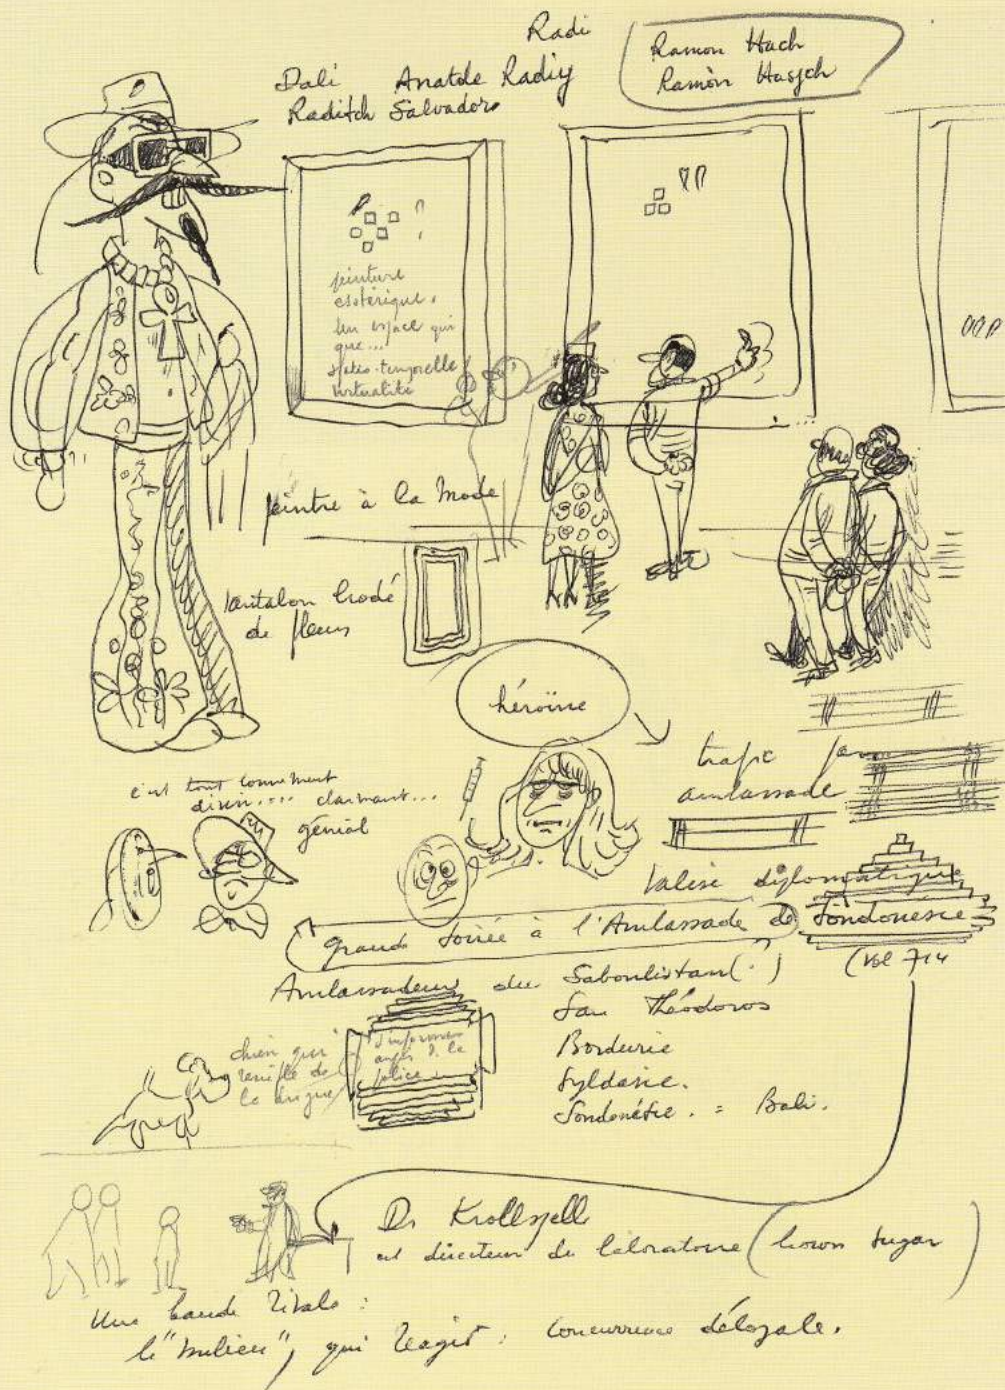 Radi
Ramon Hach
Ramon Hasch
Dali Anatole Radiy
Raditch Salvadore
peinture
esotérique.
Un espace qui
que...
spatio-temporelle
virtualité
peintre à la mode
Pantalon brodé
de fleurs
héroïne
trafic par
ambassade
c'est tout bonnement
divin.... charmant...
génial
Valise diplomatique
Grande soirée à l'Ambassade de Sondonésie
(Vol 714
Ambassadeurs du Saboulistan(?)
San Théodoros
Bordurie
Syldavie.
Sondonésie. = Bali.
chien qui
renifle de
la drogue
s'informer
auprès de la
police
Dr Krollspell
est directeur du laboratoire (brown sugar)
Une bande rivale :
le "milieu", qui réagit : concurrence déloyale.